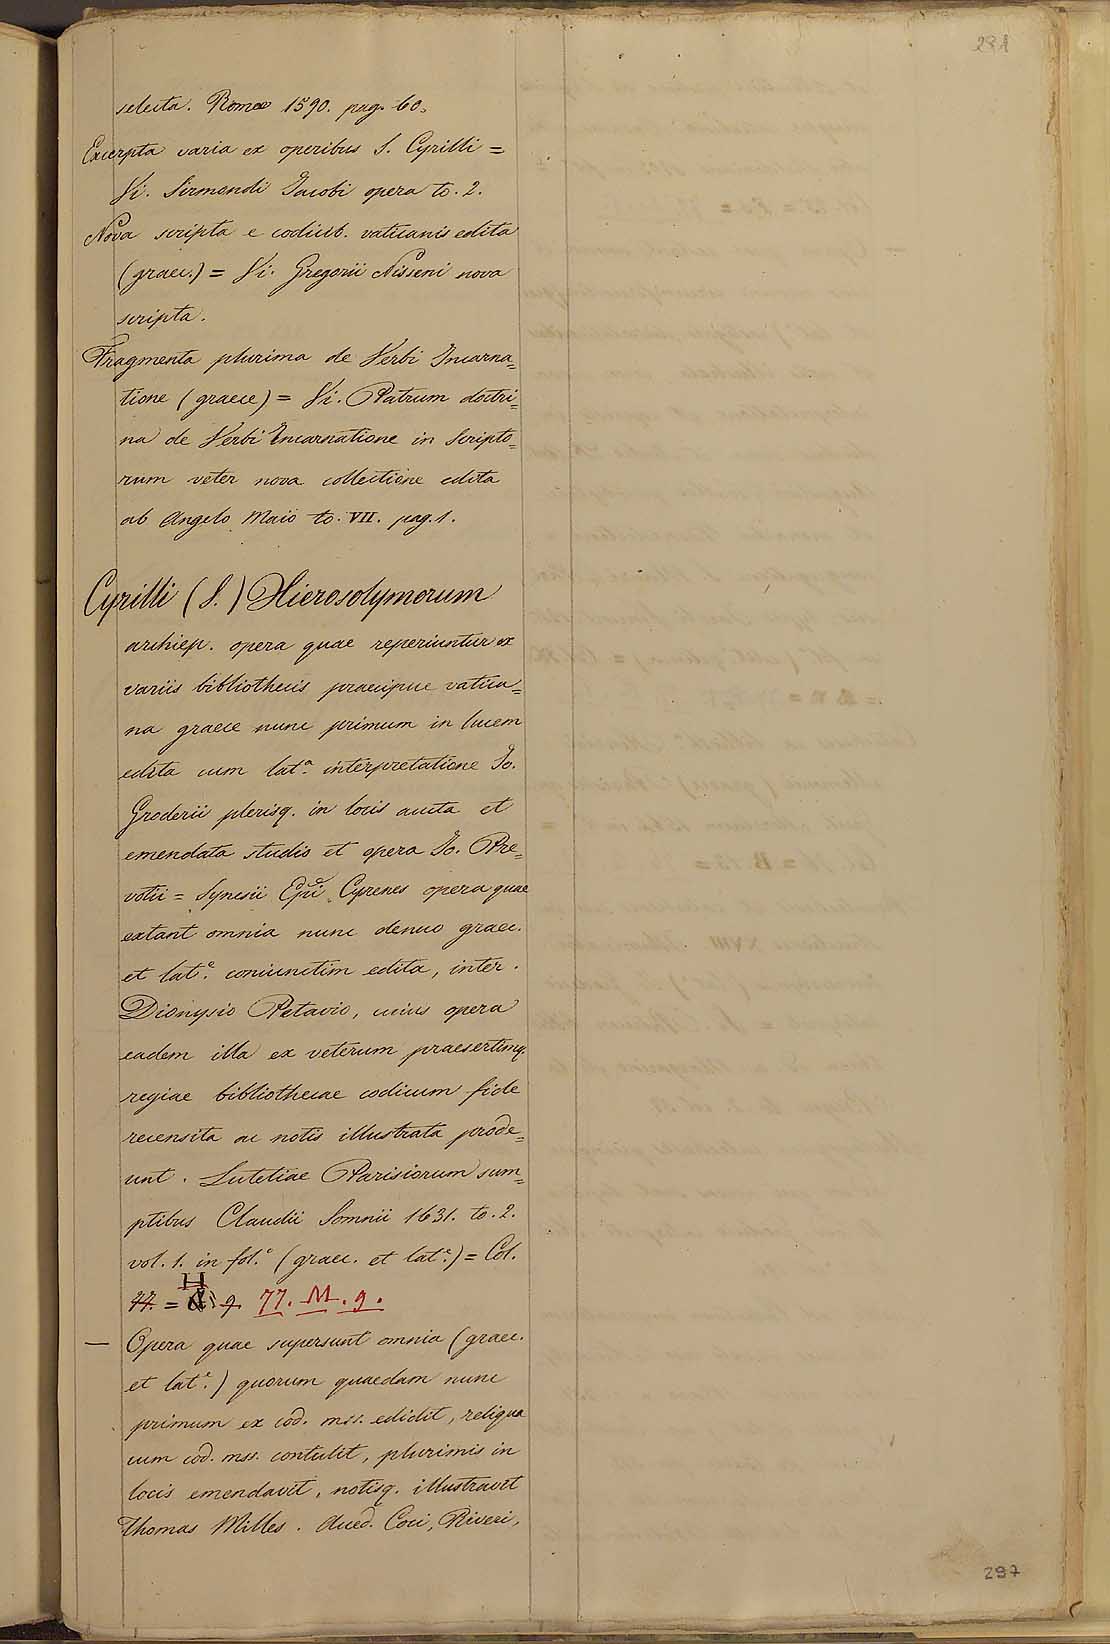 281
selecta. Romae 1590. pag. 60.
Excerpta varia ex operibus S. Cyrilli =
Vi. Sirmondi Jacobi opera to. 2.
Nova scripta e codicib. vaticanis edita
(graec.) = Vi. Gregorii Nisseni nova
scripta.
Fragmenta plurima de Verbi Incarna=
tione (graece) = Vi. Patrum doctri=
na de Verbi Incarnatione in Scripto=
rum veter nova collectione edita
ab Angelo Maio to. VII. pag. 1.
Cyrilli (S.) Hierosolymorum
archiep. opera quae reperiuntur ex
variis bibliothecis praecipue vatica=
na graece nunc primum in lucem
edita cum lat.a interpretatione Jo.
Groderii plerisq. in locis aucta et
emendata studio et opera Jo. Pre=
votii = Synesii Epi Cyrenes opera quae
extant omnia nunc denuo graec.
et lat.e coniunctim edita, inter.
Dionysio Petavio, cuius opera
eadem illa ex veterum praesertimq.
regiae bibliothecae codicum fide
recensita ac notis illustrata prode=
unt. Lutetiae Parisiorum sum=
ptibus Claudii Somnii 1631. to. 2.
vol. 1. in fol.o (graec. et lat.e) = Col.
77. = H 9. 77. M. 9.
— Opera quae supersunt omnia (graec.
et lat.e) quorum quaedam nunc
primum ex cod. mss. edidit, reliqua
cum cod. mss. contulit, plurimis in
locis emendavit, notisq. illustravit
Thomas Milles. Aued. Coci, Riveri,
297